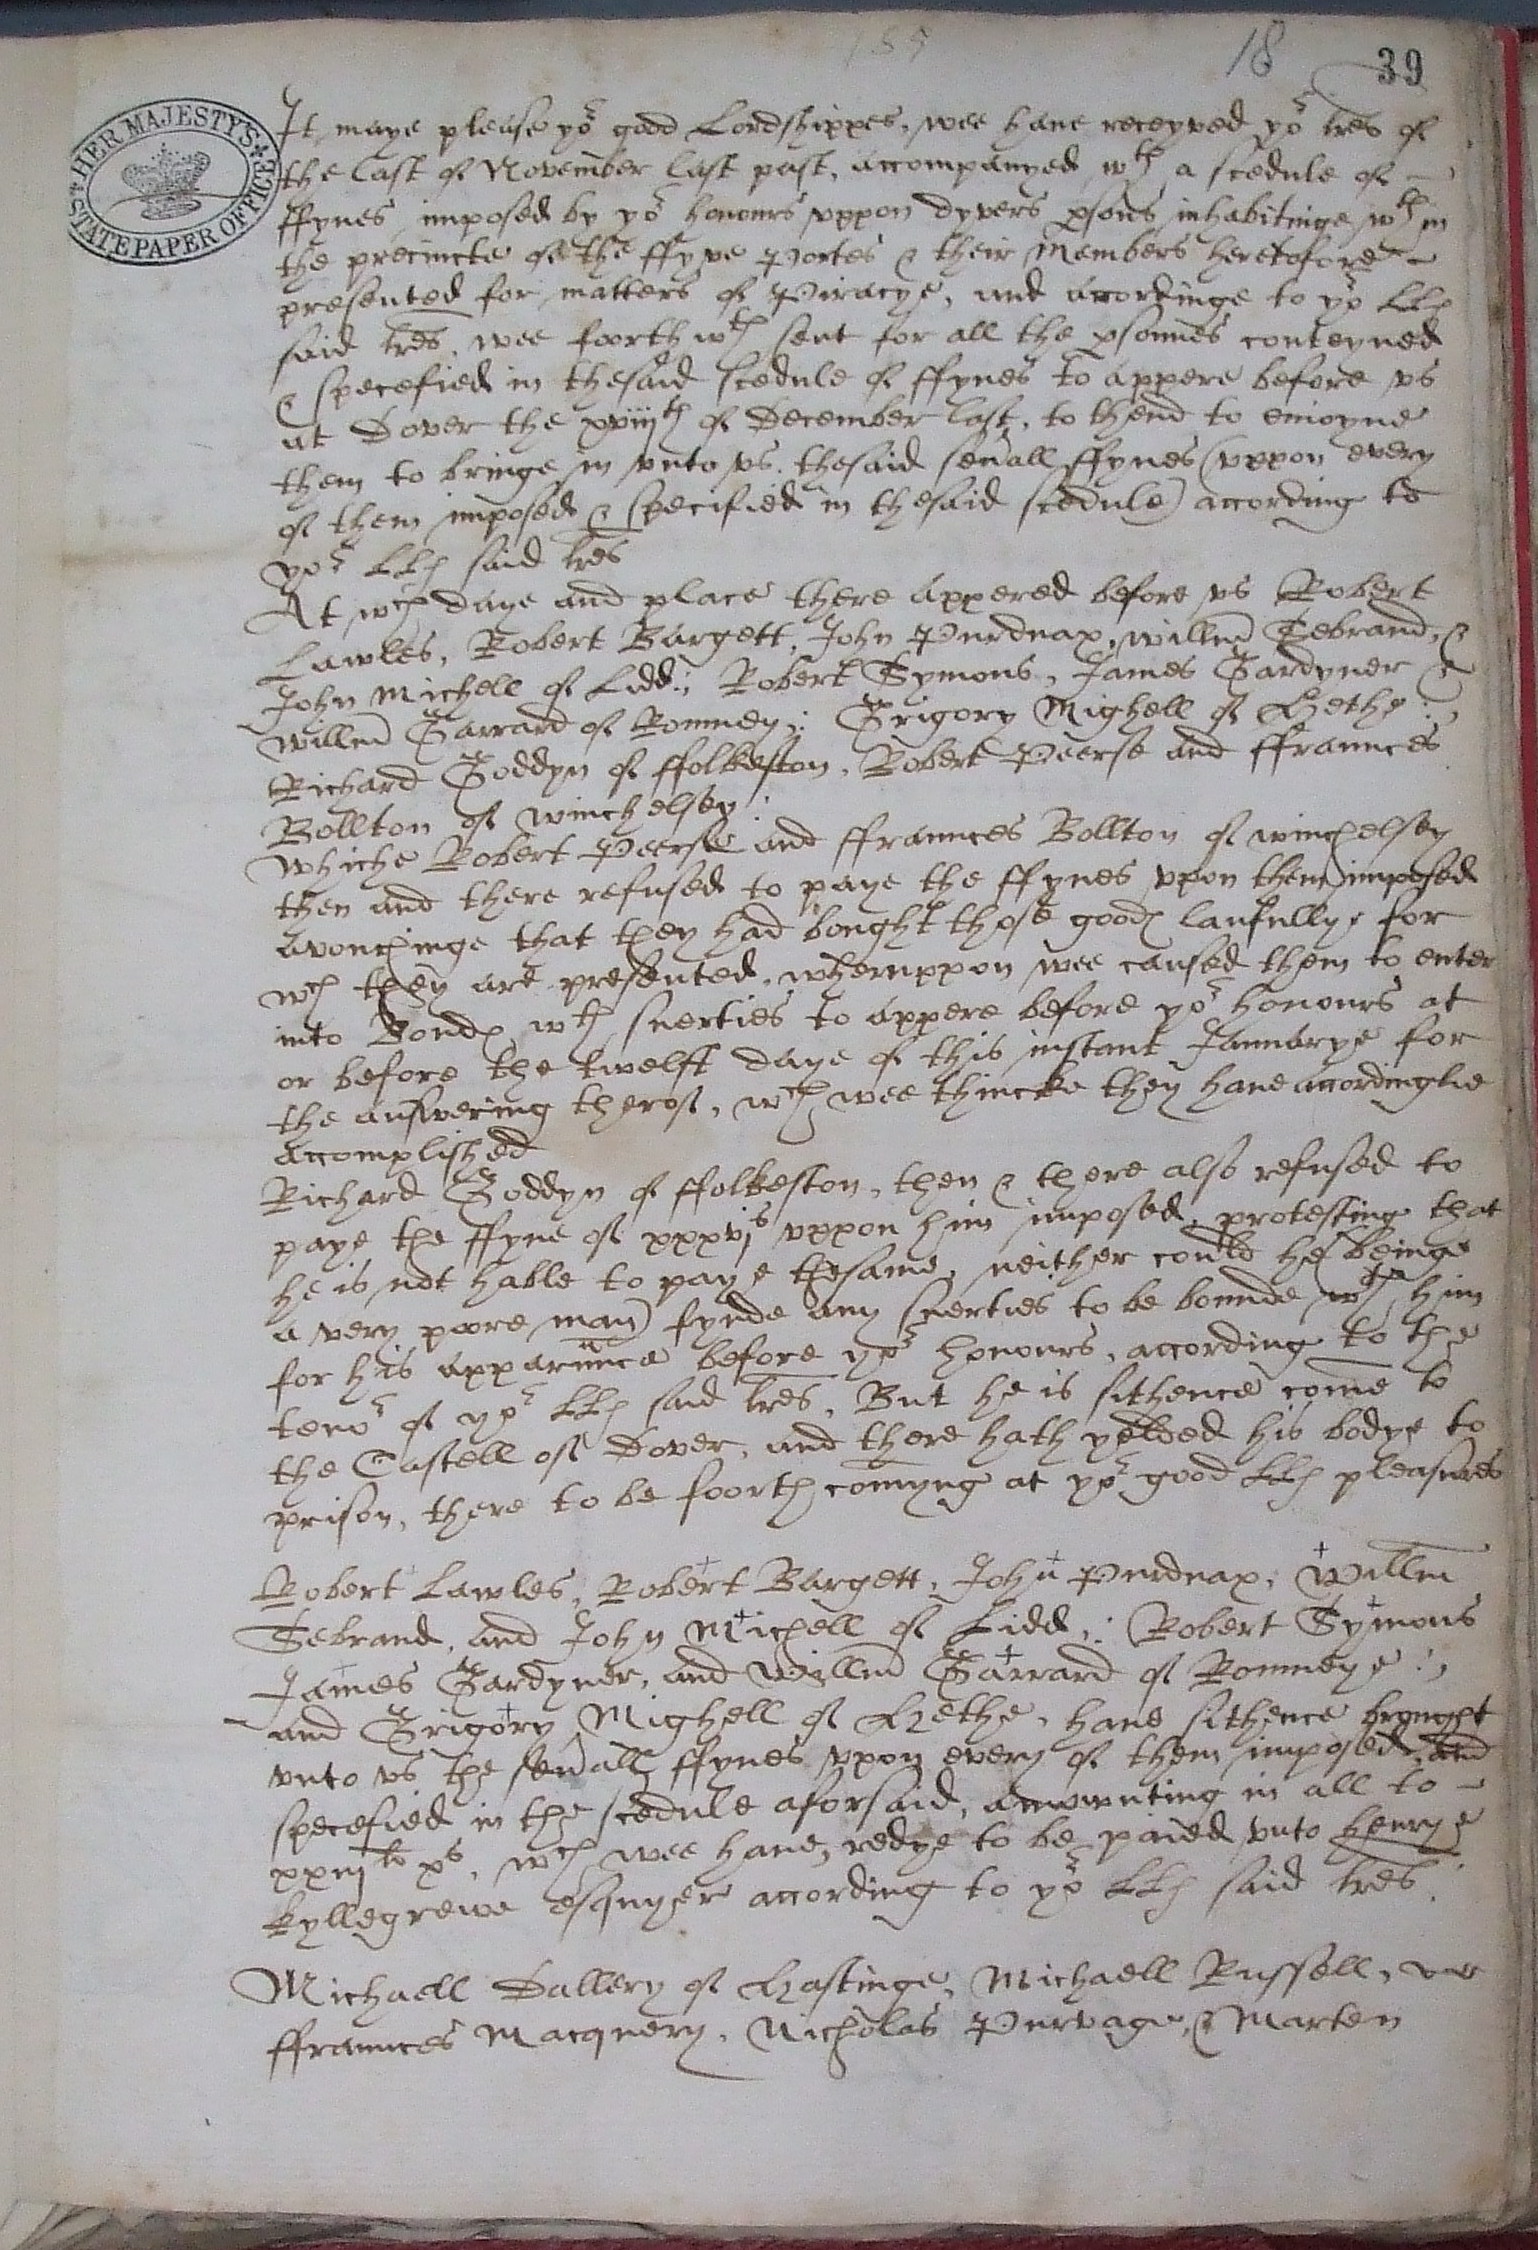 18
39
HER MAJESTY'S STATE PAPER OFFICE
It maye please yor good Lordshippes, wee haue receyved yor lres of
the last of November last past, accompanyed wth a scedule of
ffynes imposed by yor honours vppon dyvers psons inhabitinge wthin
the precincte of the ffyve Portes & their Members heretofore
presented for matters of Piracye, and accordinge to yor LLs
said lres, wee foorthwth sent for all the psonnes conteyned
& specefied in thesaid scedule of ffynes to appere before vs
at Dover the xviijth of December last, to thend to enioyne
them to bringe in vnto vs thesaid seuall ffynes (vppon every
of them imposed & specified in thesaid scedule) according to
yor LLs said lres
At wch daye and place there appered before vs Robert
Lawles, Robert Bargett, John Purduax, Willm Tebrand, &
John Michell of Lidd: Robert Symons, James Gardyner &
Willm Garrard of Romney: Grigory Mighell of Hethe:
Richard Goddyn of ffolkeston, Robert Peerse and ffraunces
Bollton of Winchelsey:
Whiche Robert Peerse and ffraunces Bollton of Winchelsey
then and there refused to paye the ffynes vpon them imposed
avouchinge that they had bought those goodes laufullye for
wch they are presented, wheruppon wee caused them to enter
into Bondes wth suerties to appere before yor honours at
or before the twelft daye of this instant Januarye for
the answering therof, wch wee thincke they haue accordinglie
accomplished
Richard Goddyn of ffolkeston, then & there also refused to
paye the ffyne of xxxvjs vppon him imposed, protesting that
he is not hable to paye thesame, neither could he (being
a very poore man) fynde any suerties to be bounde wth him
for his apparunce before yor honours, according to the
tenor of yor LLs said lres, But he is sithence come to
the Castell of Dover, and there hath yelded his bodye to
prison, there to be foorth comyng at yor good LLs pleasures
Robert Lawles, Robert Bargett, John Purduax, Willm
Tebrand, and John Michell of Lidd: Robert Symons
James Gardyner, and Willm Garrard of Romneye:
and Grigory Mighell of Hethe, haue sithence brought
vnto vs the seuall ffynes vpon every of them imposed, and
specefied in the scedule aforsaid, amounting in all to
xxiijli xs, wch wee haue redye to be paied vnto Henrye
Kyllegrewe esquyer according to yor LLs said lres.
Michaell Dallery of Hastinge, Michaell Russell,
ffraunces Macquery, Nicholas Purvage, & Marten